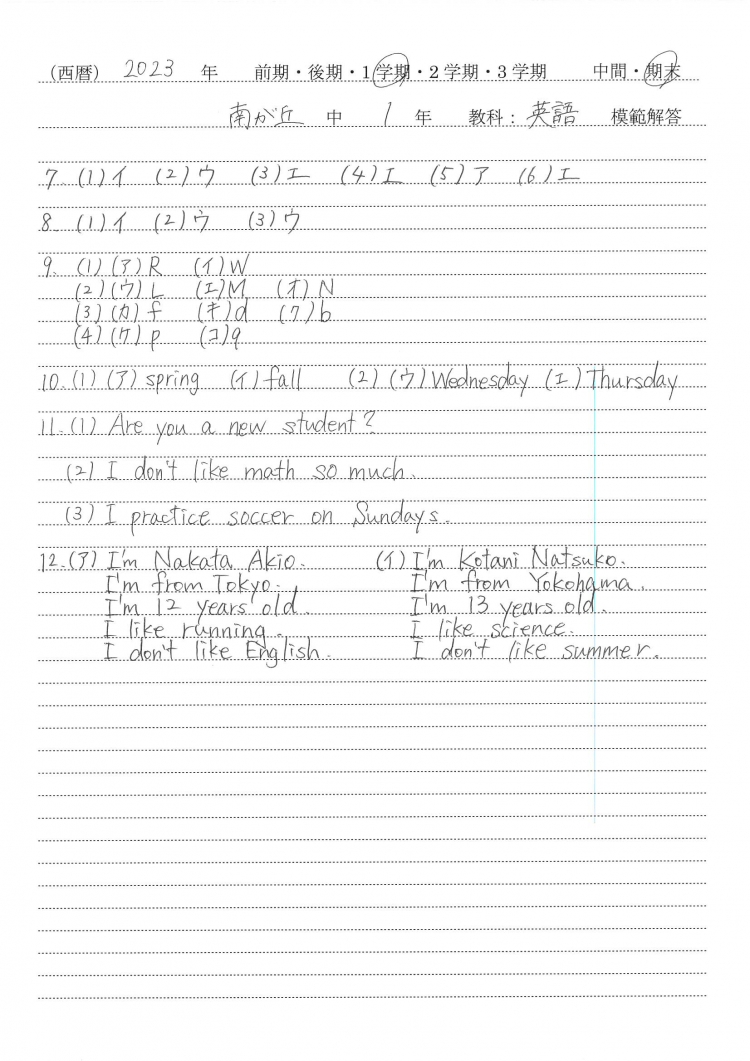 (西暦) 2023 年 前期・後期・1学期・2学期・3学期 中間・期末
南が丘 中 1 年 教科：英語 模範解答
7. (1)イ (2)ウ (3)エ (4)エ (5)ア (6)エ
8. (1)イ (2)ウ (3)ウ
9. (1)(ア)R (イ)W
(2)(ウ)L (エ)M (オ)N
(3)(カ)f (キ)d (ク)b
(4)(ケ)p (コ)q
10.(1)(ア)spring (イ)fall (2)(ウ)Wednesday (エ)Thursday
11.(1) Are you a new student?
(2) I don't like math so much.
(3) I practice soccer on Sundays.
12.(ア) I'm Nakata Akio. (イ) I'm Kotani Natsuko.
I'm from Tokyo. I'm from Yokohama.
I'm 12 years old. I'm 13 years old.
I like running. I like science.
I don't like English. I don't like summer.